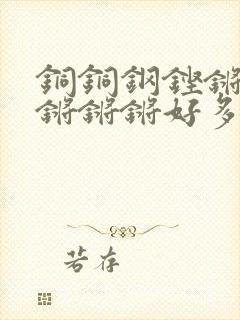 銅銅鋼鏗鏘
鏘鏘鏘好多
若存